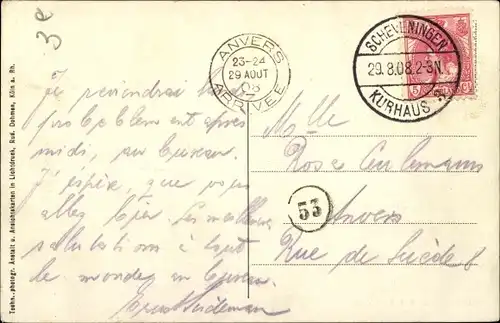 3e
Techn.-photogr. Anstalt u. Ansichtskarten in Lichtdruck, Rud. Dohmen, Köln a. Rh.
ANVERS
23-24
29 AOUT
08
ARRIVÉE
SCHEVENINGEN
29.8.08.2-3N.
KURHAUS
5
Je reviendrai
probablement après
midi, au bureau.
J'espère, que vous
allez bien. Les meilleures
salutations à tout
le monde au bureau.
Mlle
Rosa
53
Anvers
Rue de Suède 8